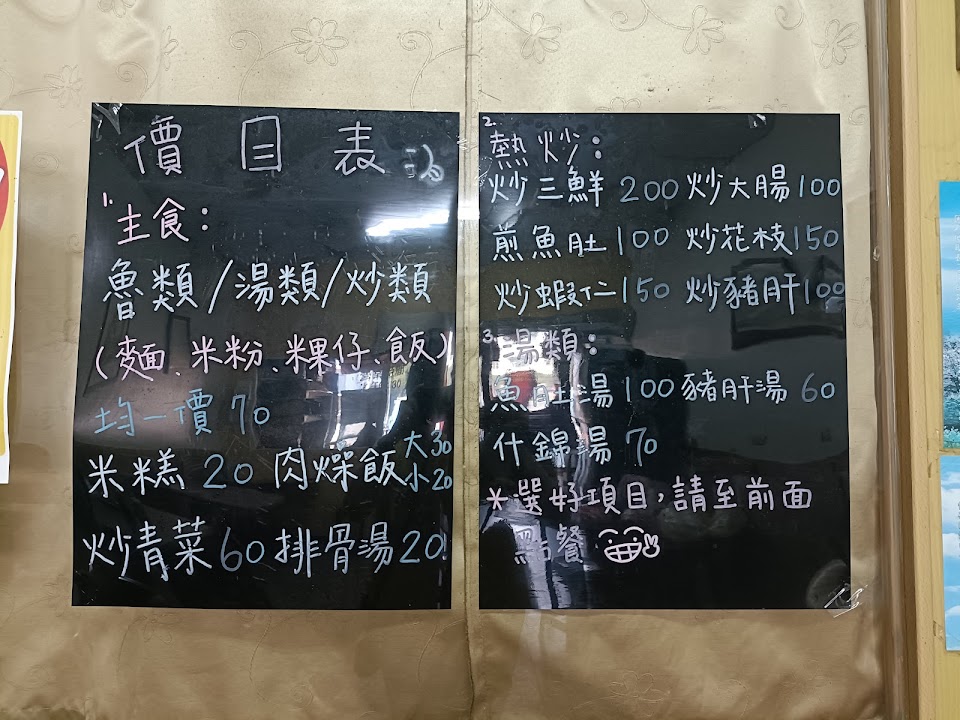 價目表
1.
主食:
魯類/湯類/炒類
(麵、米粉、粿仔、飯)
均一價 70
米糕 20 肉燥飯 大30 小20
炒青菜 60 排骨湯 20
2.
熱炒:
炒三鮮 200 炒大腸 100
煎魚肚 100 炒花枝 150
炒蝦仁 150 炒豬肝 100
3.
湯類:
魚肚湯 100 豬肝湯 60
什錦湯 70
*選好項目,請至前面
點餐